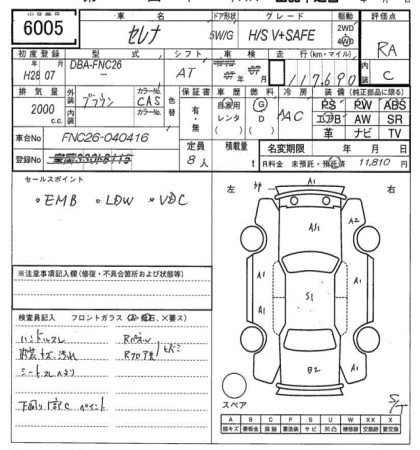 6005
車名
セレナ
ドア形状
5W/G
グレード
H/S V+SAFE
駆動
2WD
4WD
評価点
RA
内装
C
初度登録
H28 年 07 月
型式
DBA-FNC26
シフト
AT
車検
年 月
走行(km・マイル)
117,690
排気量
2000 c.c.
外装
ブラウン
内装
カラーNo.
CAS
カラーNo.
色替
保証書
有・無
車歴
自家用
レンタ
( )
燃料
G
D
( )
冷房
AAC
装備(純正部品に限る)
PS PW ABS
エアB AW SR
革 ナビ TV
車台No
FNC26-040416
登録No
定員
8人
積載量
t
名変期限 年 月 日
R料金 未預託・預託済 11,810 円
セールスポイント
・EMB ・LDW ・VDC
※注意事項記入欄(修復・不具合箇所および状態等)
検査員記入 フロントガラス
ハンドルスレ
内装キズ、汚れ
Rパネル
Rフロア
下回り
ペイント
左
右
A1
A2
A/S1
A1
A1
A1
S1
B2
スペア
S/T
A B C P S U W X XX
線キズ 要板金 腐食 要塗装 サビ 凹凸 補修跡 交換跡 要交換